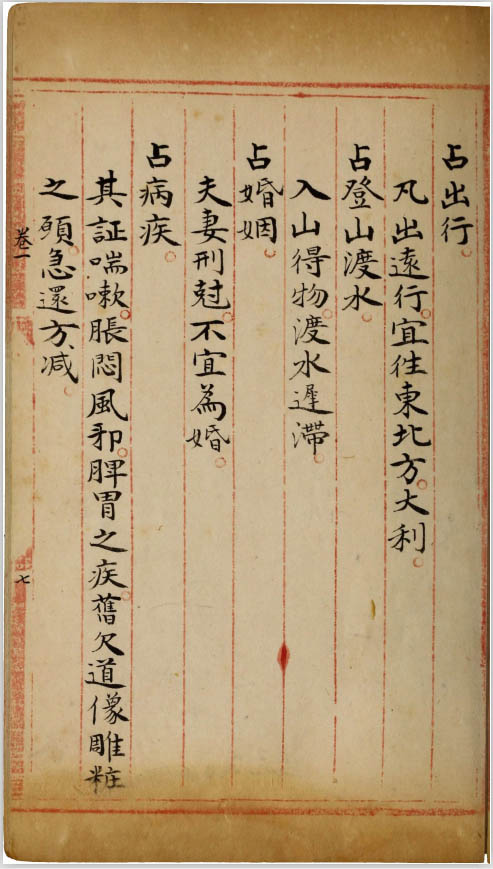 占出行
凡出遠行宜徃東北方大利
占登山渡水
入山得物渡水遲滯
占婚姻
夫妻刑尅不宜為婚
占病疾
其証喘嗽脹悶風邪脾胃之疾舊欠道像雕粧
之願急還方减
卷一
七